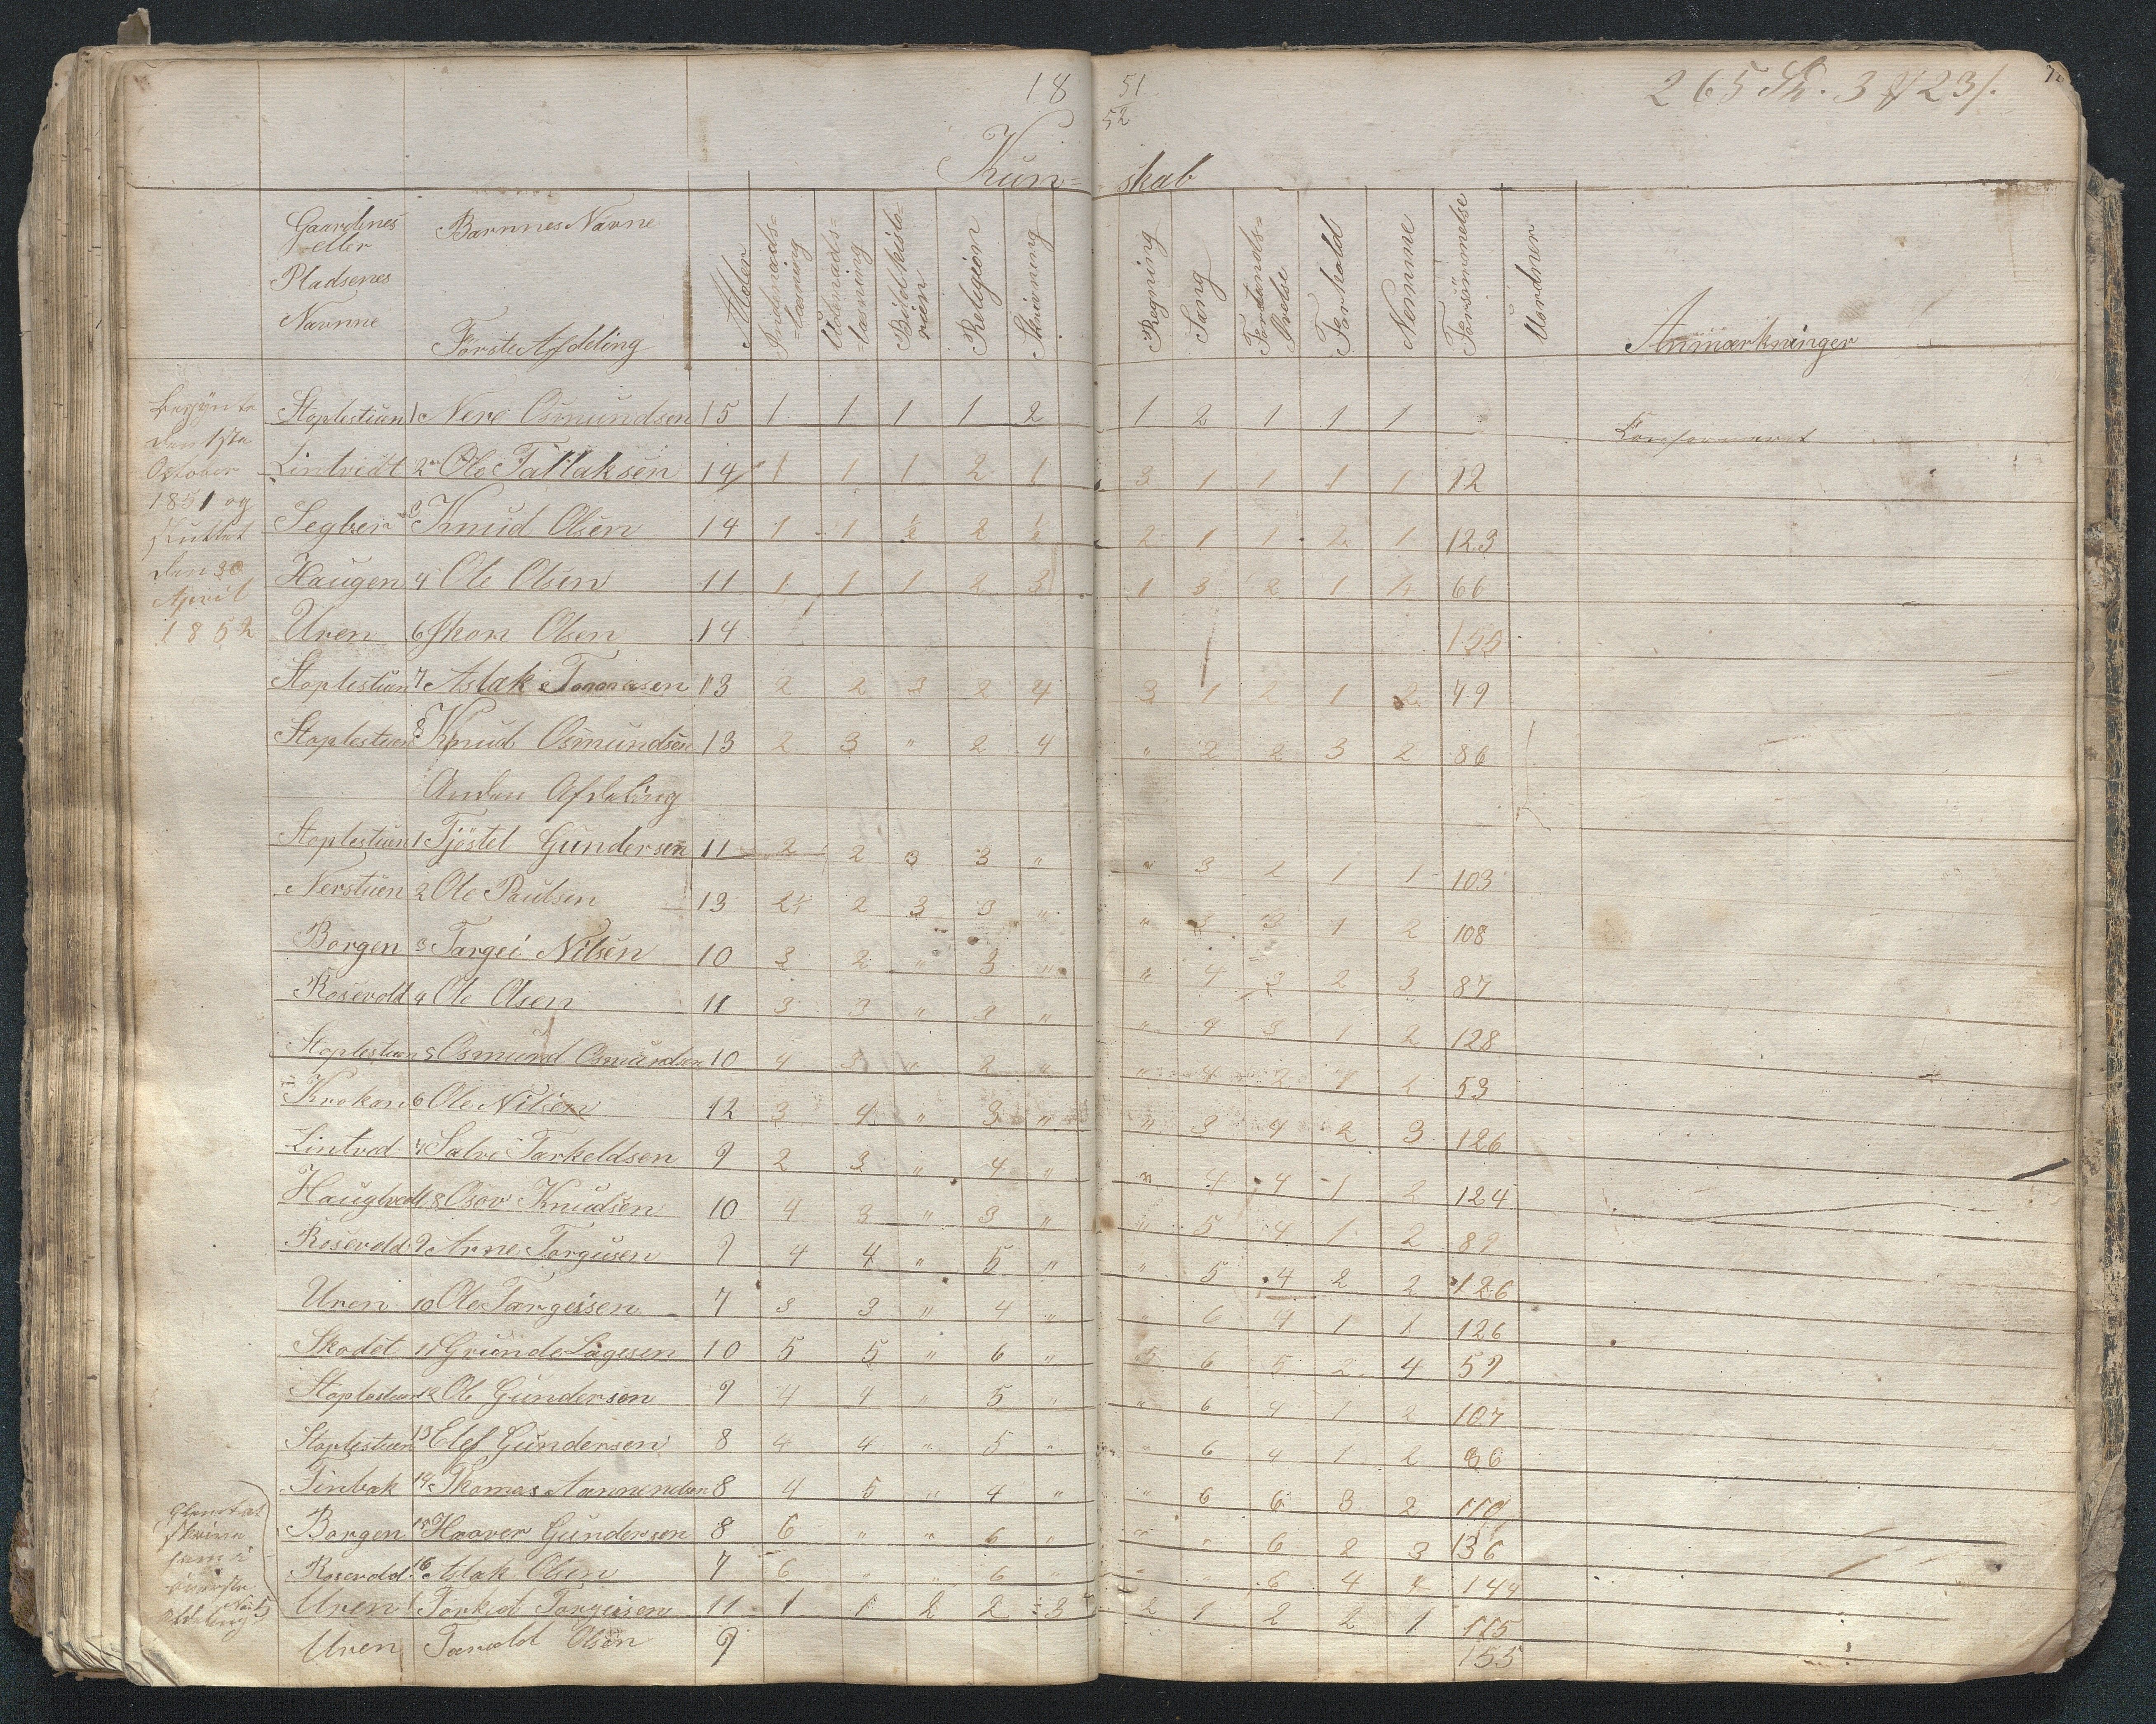 18 51
52
265 Sk. 3 # 23/.
Kun= skab
Gaardenes eller Pladsenes Navnne
BarnnesNavne
Första Afdeling
Alder
Indenads= =læsning
Udenads= =læsning
Bibelhisto= rien
Religion
Skrivning
Regning
Sang
Forstands= Øvelse
Forhold
Nemme
Forsömmelse
Uordner
Anmærkninger
Begÿnte
den 1ste
October
1851 og
sluttet
den 30
April
1852
Stoplestuen 1 Nere Osmundsen 15 1 1 1 1 2 1 2 1 1 1 Konfermeret
Lintvidt 2 Ole Tallaksen 14 1 1 1 2 1 3 1 1 1 1 12
Segber 3 Knud Olsen 14 1 1 2 2 1 1 2 1 123
Haugen 4 Ole Olsen 11 1 1 1 2 3 1 3 2 1 66
Uren 6 Olsen 14
Stoplestuen 7 Aslak Tomasen 13 2 2 3 2 4 3 1 2 1 2 79
Stoplestuen 8 Knud Osmundsen 13 2 3 " 2 4 " 2 2 3 2 86
Anden Afdeling
Stoplestuen 1 Tjöstel Gundersen 11 2 2 3 3 " " 3 2 1 1 103
Nerstuen 2 Ole Paulsen 13 2 3 3 " " 3 3 1 2 108
Borgen 3 Targei Nilsen 10 3 2 " 3 " " 4 3 2 3 87
Rosevold 4 Ole Olsen 11 3 3 " 3 " " 4 3 1 2 128
Stoplestuen 5 Osmund Osmundsen 10 4 3 " 2 " " 4 2 1 2 53
Krokan 6 Ole Nilsen 12 3 4 " 3 " " 3 4 2 3 126
Lintved 7 Salve Tarkeldsen 9 2 3 " 4 " " 4 4 1 2 124
Haugtvedt 8 Osov Knudsen 10 4 3 " 3 " " 5 4 1 2 89
Rosevold 9 Arne Torgusen 9 4 4 " 5 " " 5 4 2 2 126
Uren 10 Ole Targeisen 7 3 3 " 4 " " 6 4 1 1 126
Skodet 11 Grunde Lagesen 10 5 5 " 6 " " 6 5 2 4 59
Stoplestuen 12 Ole Gundersen 9 4 4 " 5 " " 6 4 1 2 107
Stoplestuen 13 Elef Gundersen 8 4 4 " 5 " " 6 4 1 2 86
Finbak 14 Thomas 8 4 5 " 4 " " 6 6 3 2 110
Borgen 15 Haaver Gundersen 8 6 " " 6 " " " 6 2 3 136
Rosevold 16 Aslak Olsen 7 6 " " 6 " " " 6 4 4 144
Glemt at
skrive
som i
överste
afdeling
Uren 1 Torkel Targeisen 11 1 1 2 2 3 2 1 2 2 1 115
Uren Tarald Olsen 9 155